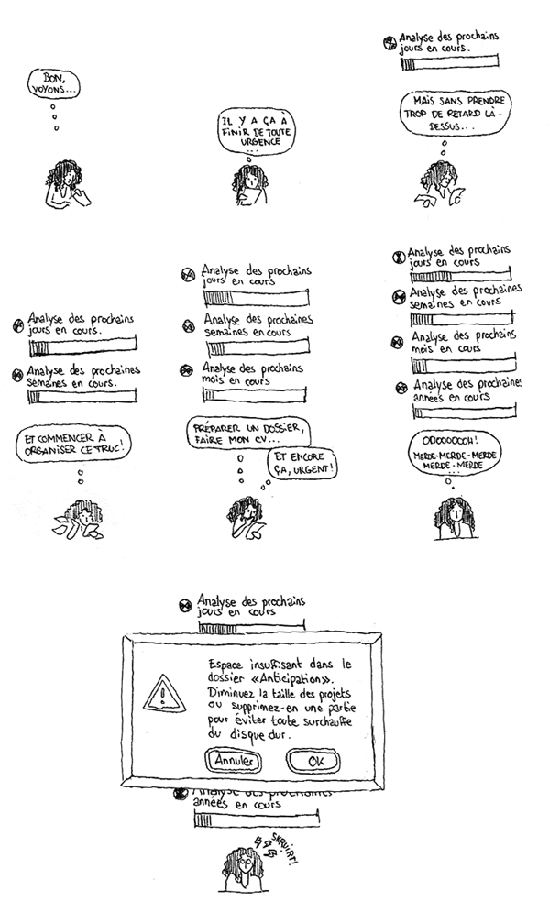 BON,
VOYONS...
IL Y A ÇA À
FINIR DE TOUTE
URGENCE
...
Analyse des prochains
jours en cours.
MAIS SANS PRENDRE
TROP DE RETARD LÀ-
DESSUS...
Analyse des prochains
jours en cours.
Analyse des prochaines
semaines en cours.
ET COMMENCER À
ORGANISER CE TRUC!
Analyse des prochains
jours en cours
Analyse des prochaines
semaines en cours
Analyse des prochains
mois en cours
PRÉPARER UN DOSSIER,
FAIRE MON CV...
ET ENCORE
ÇA, URGENT!
Analyse des prochains
jours en cours
Analyse des prochaines
semaines en cours
Analyse des prochains
mois en cours
Analyse des prochaines
années en cours
OOOOOOOH!
MERDE-MERDE-MERDE
MERDE-MERDE
...
Analyse des prochains
jours en cours
Espace insuffisant dans le
dossier «Anticipation».
Diminuez la taille des projets
ou supprimez-en une partie
pour éviter toute surchauffe
du disque dur.
Annuler OK
Analyse des prochaines
années en cours